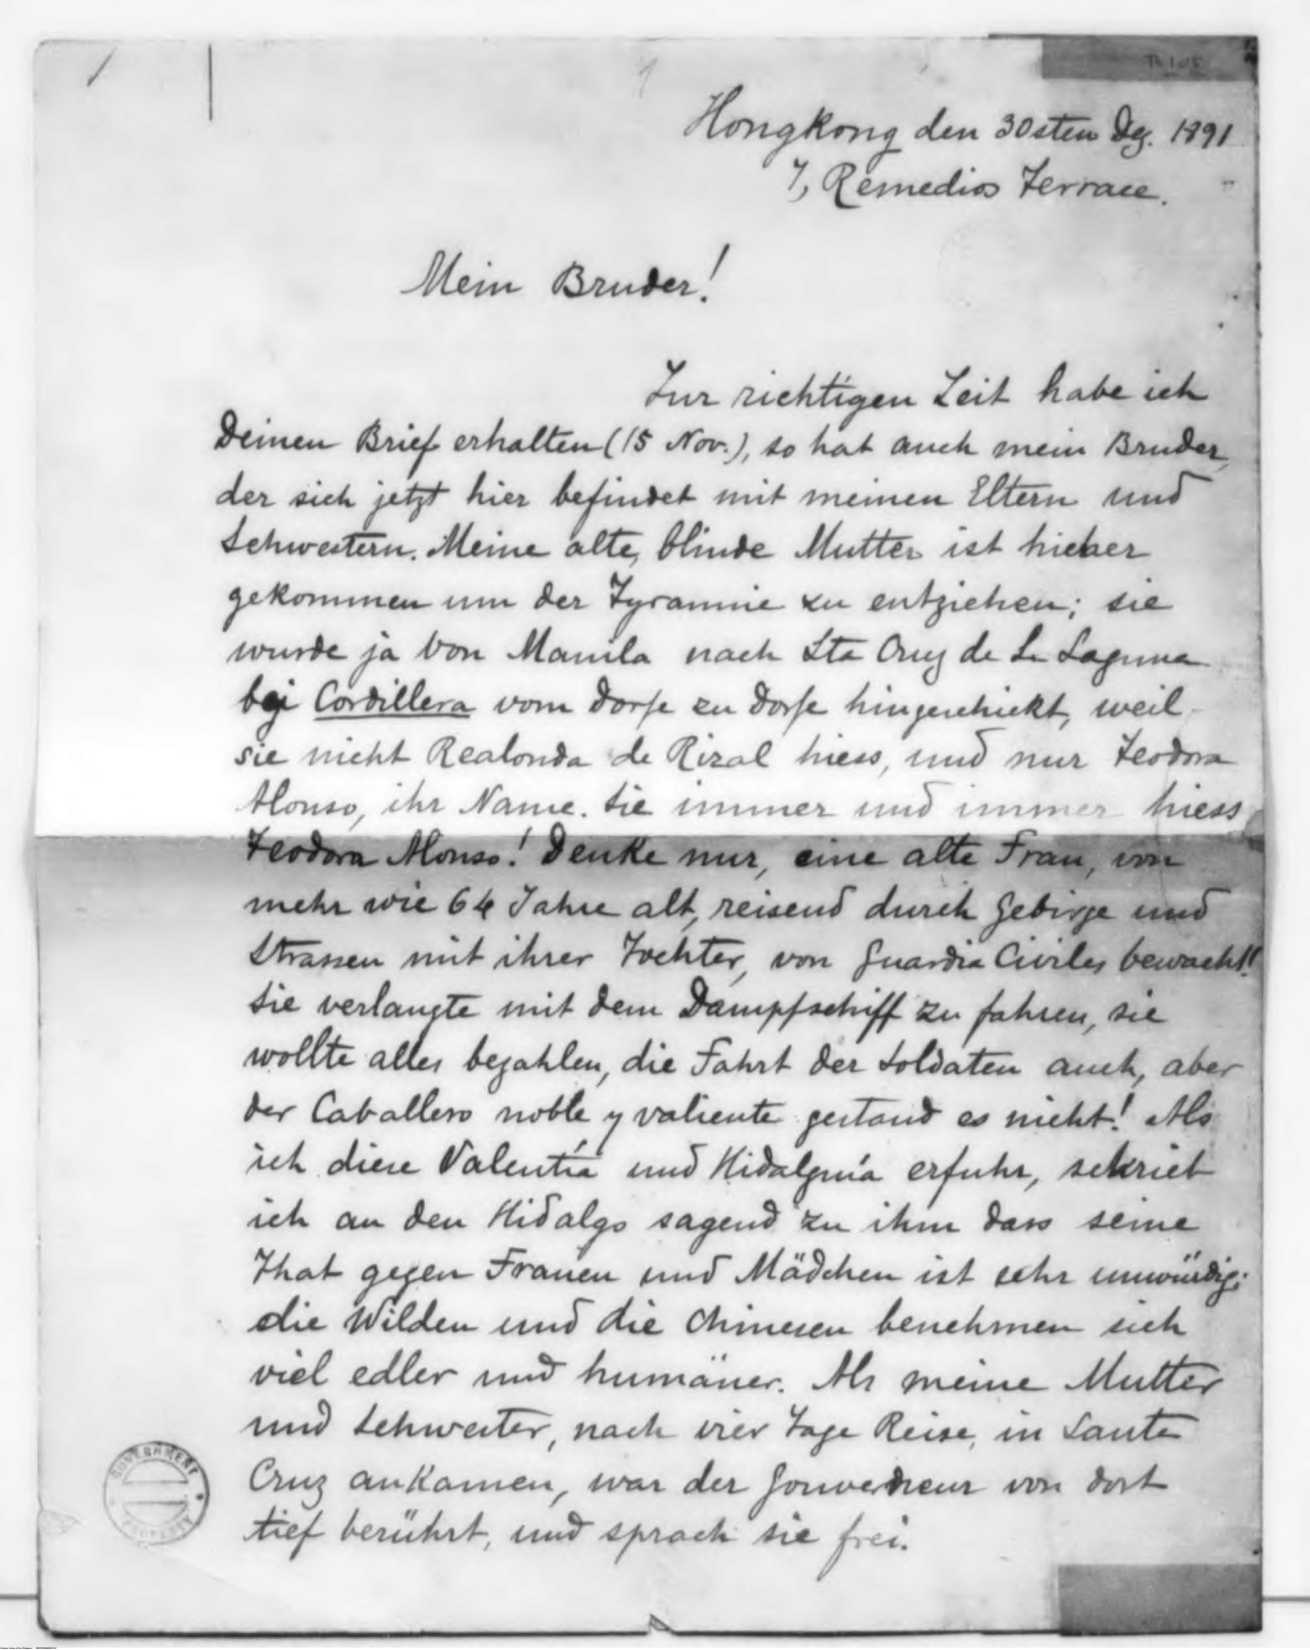 Hongkong den 30sten Dez. 1891
7, Remedios Terrace.
Mein Bruder!
Zur richtigen Zeit habe ich
Deinen Brief erhalten (15 Nov.), so hat auch mein Bruder,
der sich jetzt hier befindet mit meinen Eltern und
Schwestern. Meine alte, blinde Mutter ist hieher
gekommen um der Tyrannie zu entziehen; sie
wurde ja von Manila nach Sta Cruz de La Laguna
bei Cordillera vom Dorfe zu Dorfe hingeschickt, weil
sie nicht Realonda de Rizal hiess, und nur Teodora
Alonso, ihr Name. Sie immer und immer hiess
Teodora Alonso! Denke nur, eine alte Frau, von
mehr wie 64 Jahre alt, reisend durch Gebirge und
Strassen mit ihrer Tochter, von Guardia Civiles bewacht!
Sie verlangte mit dem Dampfschiff zu fahren, sie
wollte alles bezahlen, die Fahrt der Soldaten auch, aber
der Caballero noble y valiente gestand es nicht! Als
ich diese Valentía und Hidalguía erfuhr, schrieb
ich an den Hidalgo sagend zu ihm dass seine
That gegen Frauen und Mädchen ist sehr unwürdig:
die Wilden und die Chinesen benehmen sich
viel edler und humäner. Als meine Mutter
und Schwester, nach vier Tage Reise, in Santa
Cruz ankamen, war der Gouverneur von dort
tief berührt, und sprach sie frei.